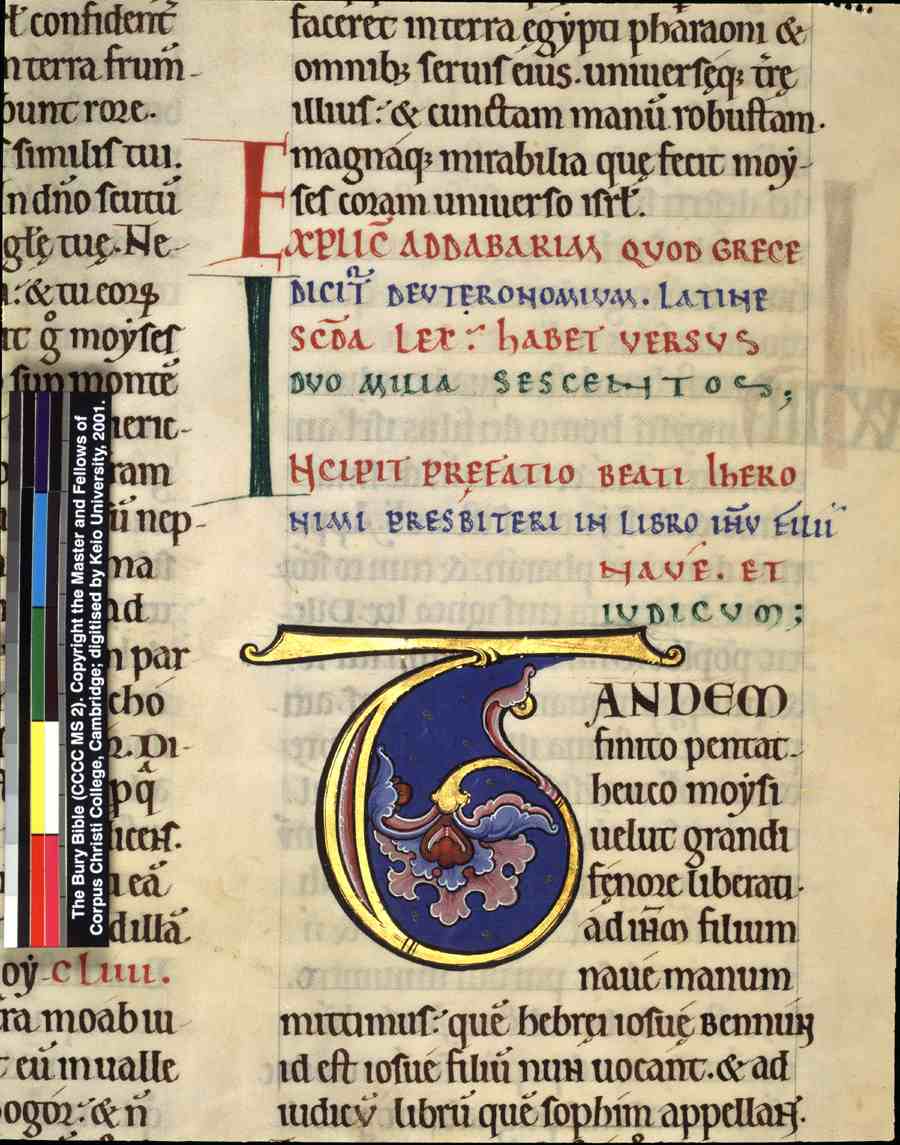 ł confident̄
n terra frum̄-
bunt rore.
similis tui.
n dn̄o scutū
glę tuę. Ne-
& tu corꝑ
g̊ moyses
sup montē
ieric-
ram
ū nep-
ma
nd
n par
chó
Di-
pq̄
eā
dillā
oy cluii.
ra moab iu-
eū in ualle
ogor: & n̄
faceret in terra egypti pharaoni &
omnib; seruis eius. uniuersęq; tr̄ę
illius: & cunctam manū robustam.
magnáq; mirabilia quę fecit moy-
ses coram uniuerso isrł.
EXPLIC̄ ADDABARIM QUOD GRECE
DICIT᷑ DEUTERONOMIUM. LATINE
SCD̄A LEX: HABET VERSVS
DVO MILIA SESCENTOS;
INCIPIT PREFATIO BEATI IHERO
NIMI PRESBITERI IN LIBRO IHV̄ FILII
NAVÉ. ET
IUDICVM;
TANDEM
finito pentat-
heuco moysi
uelut grandi
fęnore liberati.
ad ih̄m filium
naué manum
mittimus: quē hebręi iosuę Bennun
id est iosué filiū nun uocant. & ad
iudicū librū quē sophim appellant.
The Bury Bible (CCCC MS 2). Copyright the Master and Fellows of
Corpus Christi College, Cambridge; digitised by Keio University, 2001.